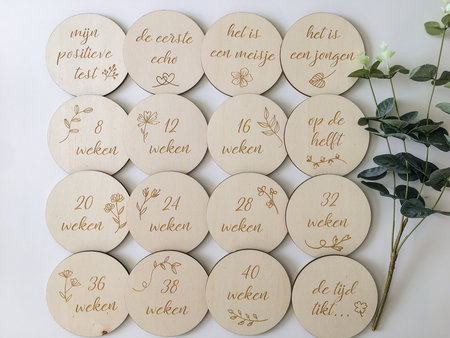 mijn
positieve
test
de eerste
echo
het is
een meisje
het is
een jongen
8
weken
12
weken
16
weken
op de
helft
20
weken
24
weken
28
weken
32
weken
36
weken
38
weken
40
weken
de tijd
tikt...